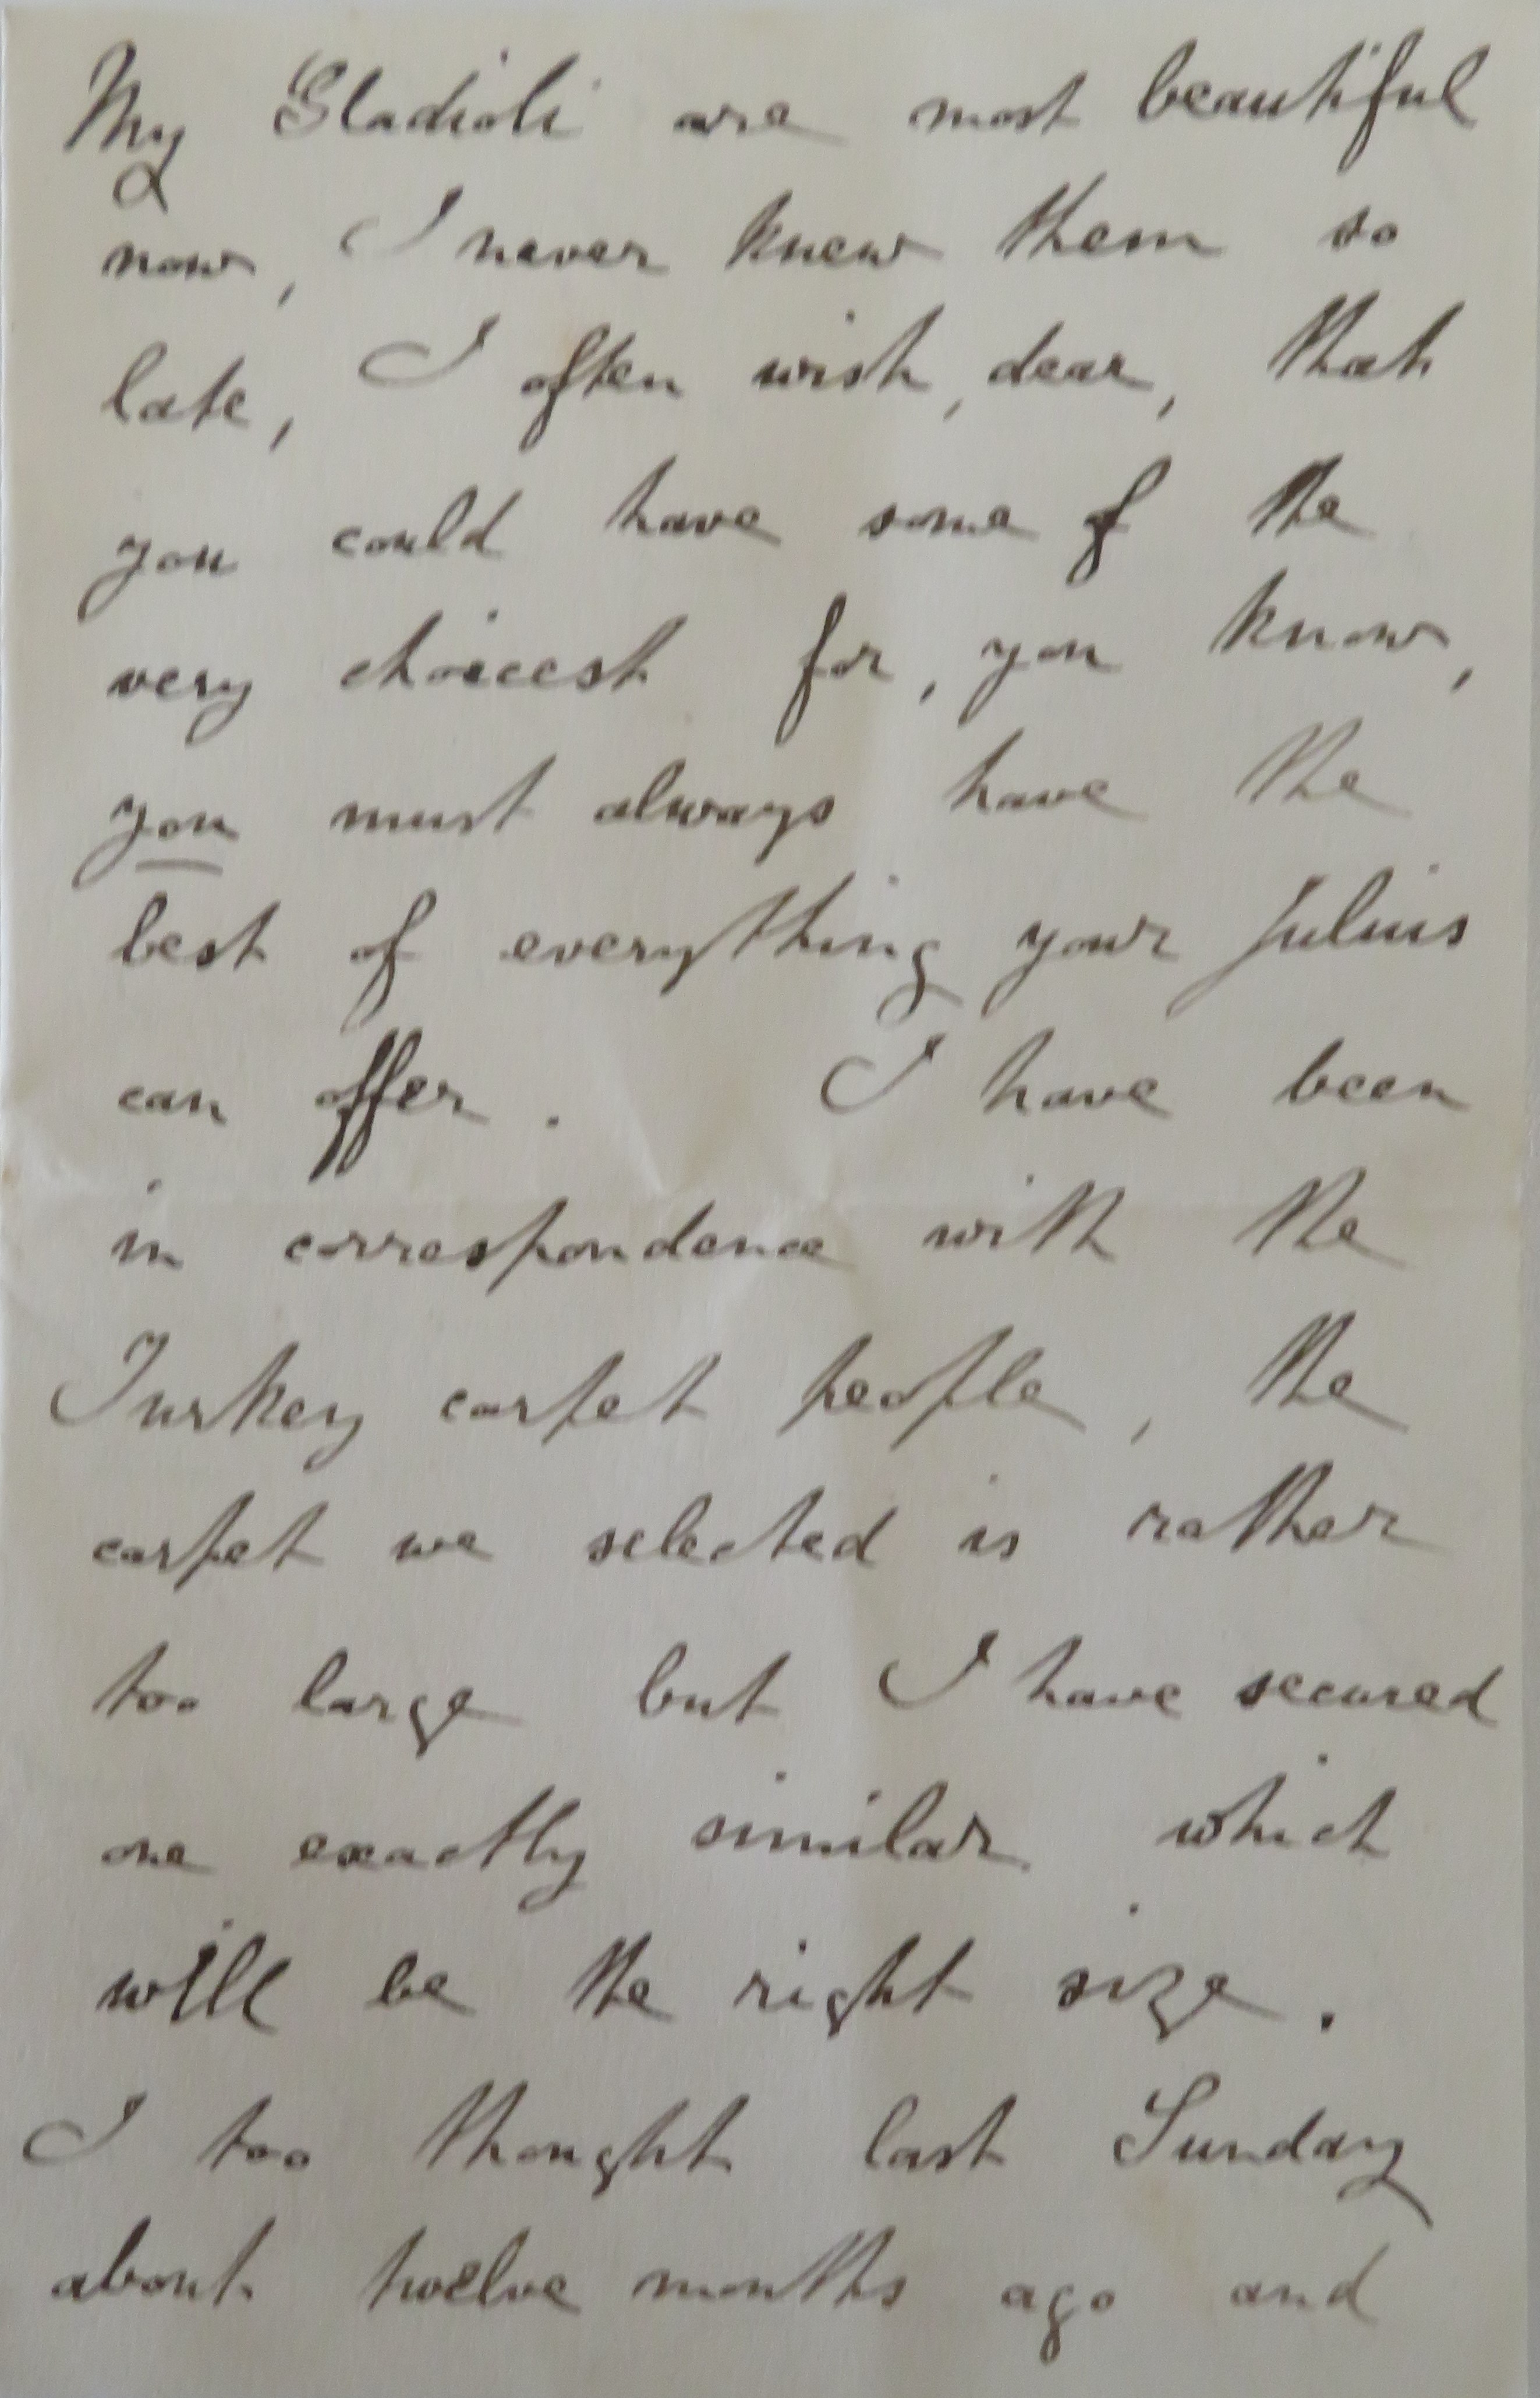 My Gladioli are most beautiful
now, I never knew them so
late, I often wish, dear, that
you could have some of the
very choicest for, you know,
you must always have the
best of everything your Julius
can offer. I have been
in correspondence with the
Turkey carpet people, the
carpet we selected is rather
too large but I have secured
one exactly similar which
will be the right size.
I too thought last Sunday
about twelve months ago and